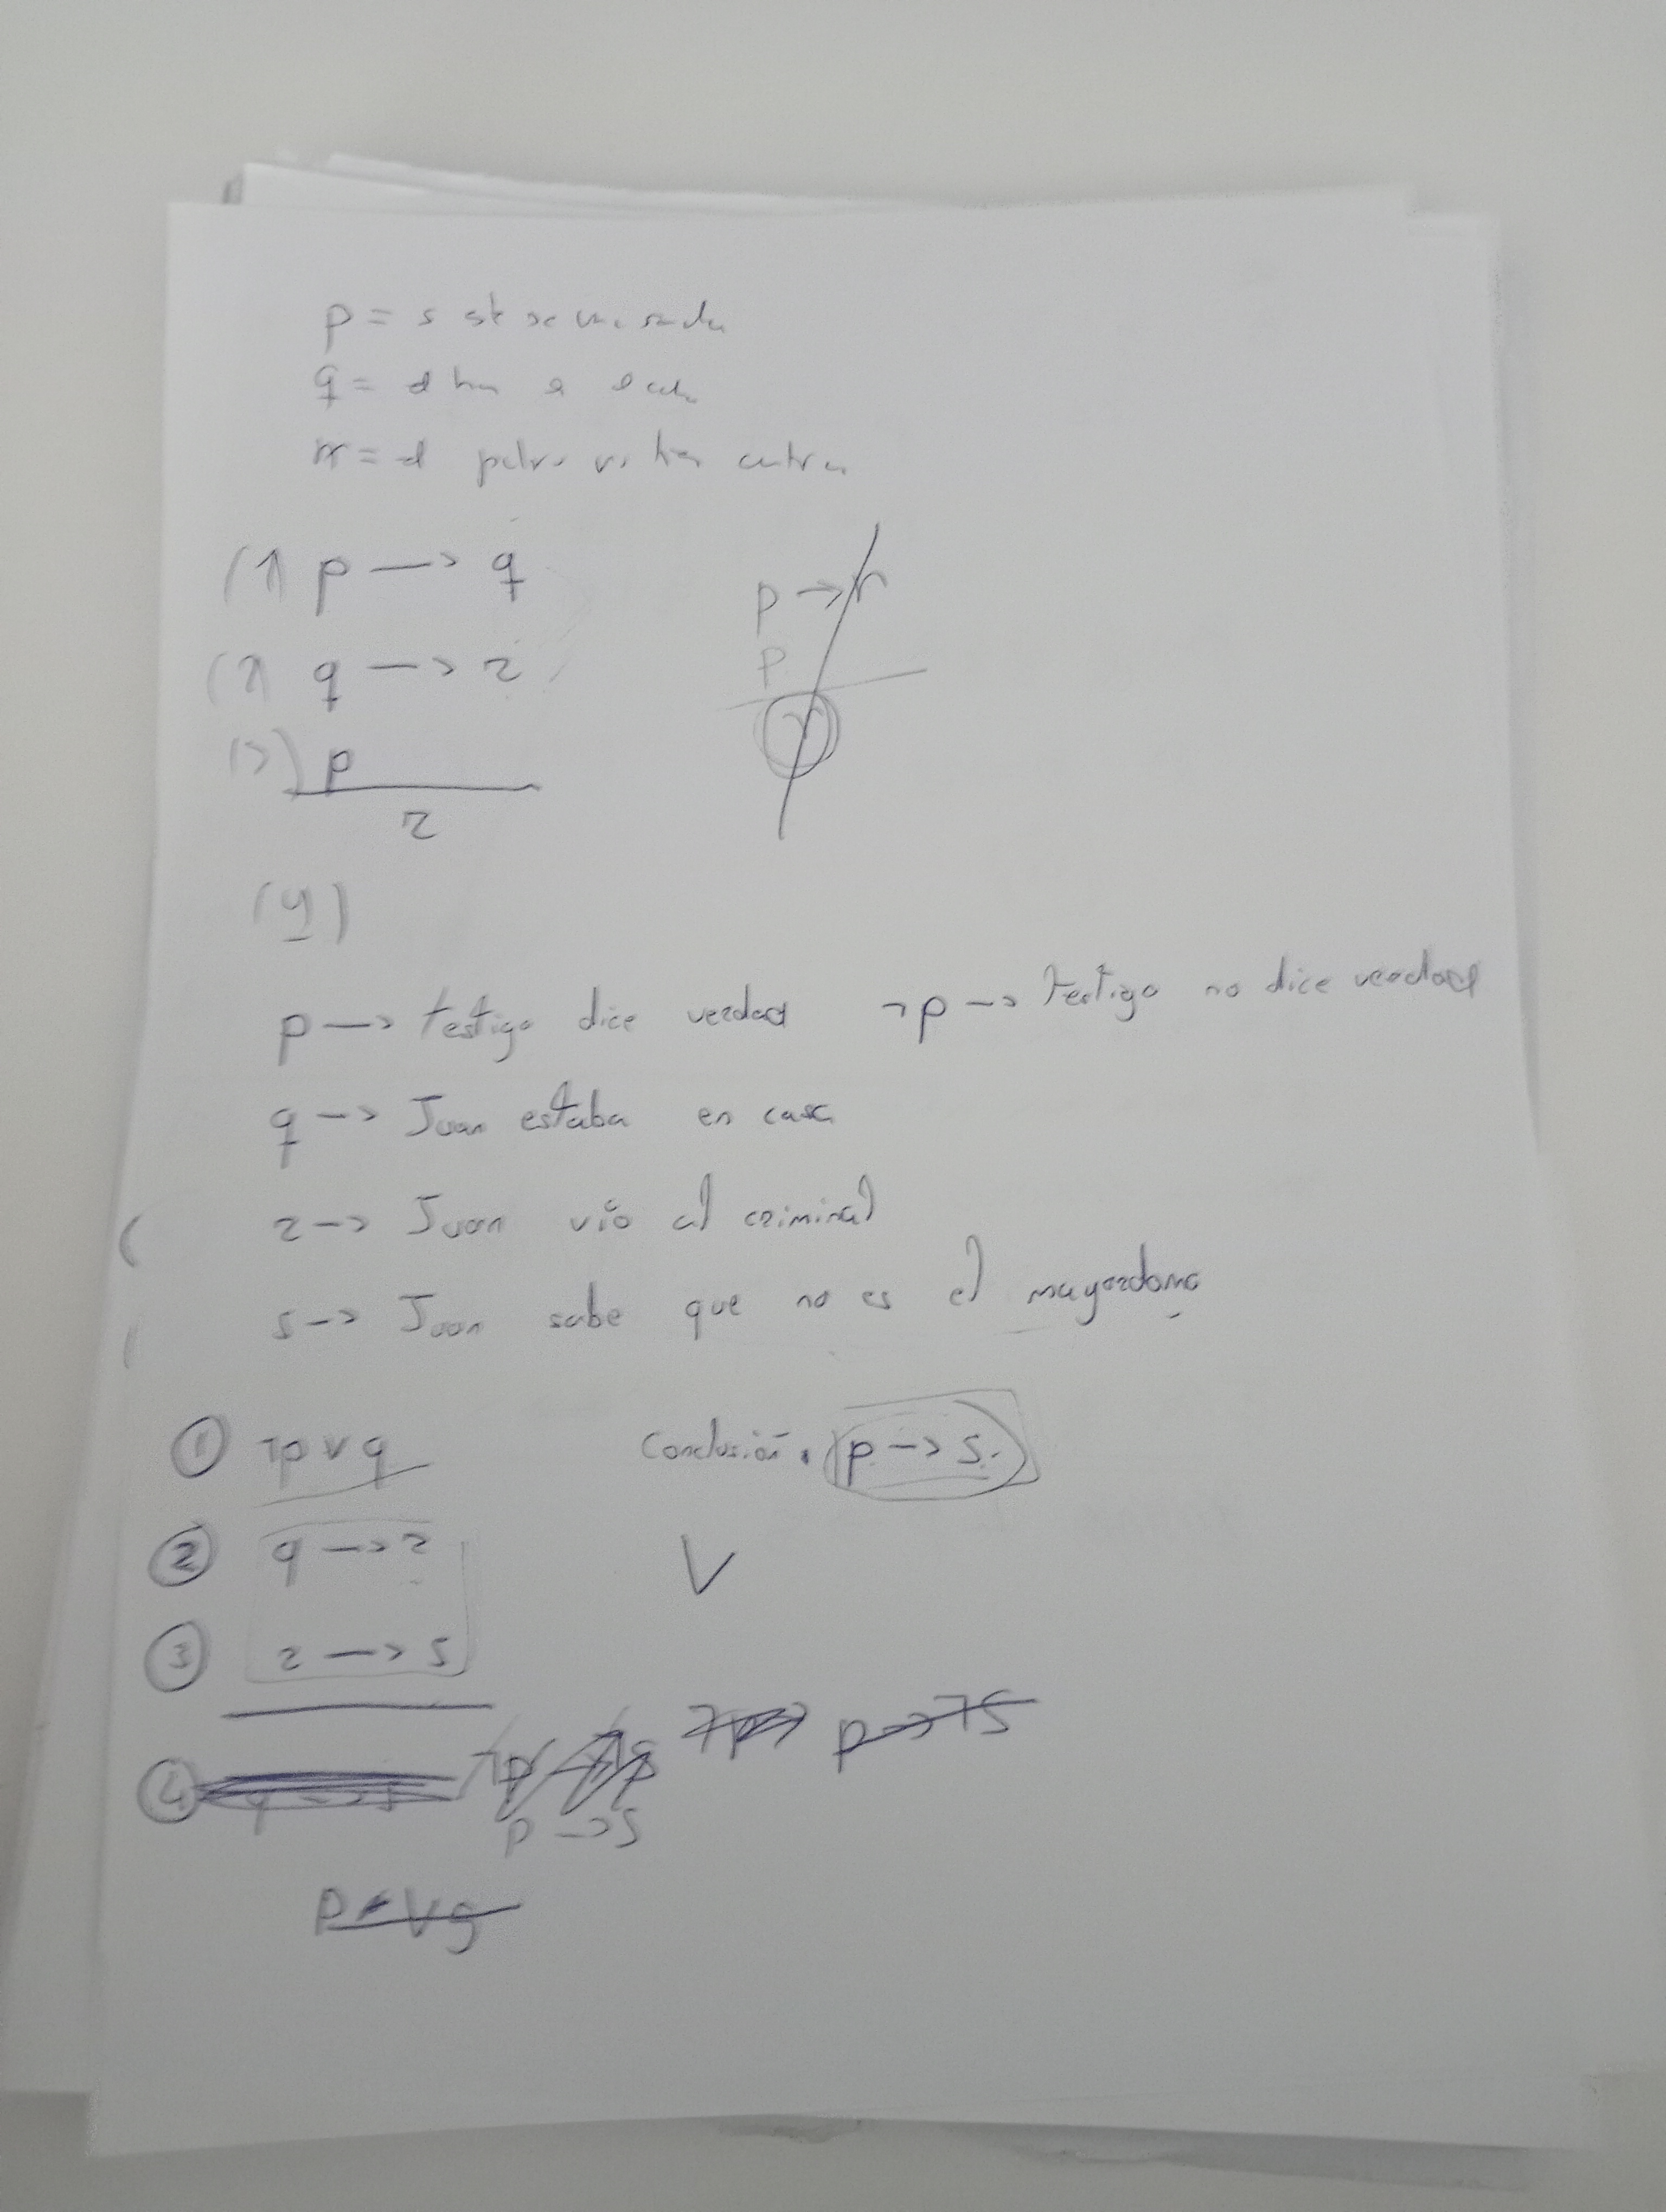 p =
q =
r =
(1) p —> q
(2) q —> r
(3) p
r
p —> r
p
r
(4)
p —> testigo dice verdad ¬p —> testigo no dice verdad
q —> Juan estaba en casa
r —> Juan vio al criminal
s —> Juan sabe que no es el mayordomo
① ¬p v q Conclusión. p —> s.
② q —> r V
③ r —> s
④ q —> s p —> ¬s
p —> s
p v q